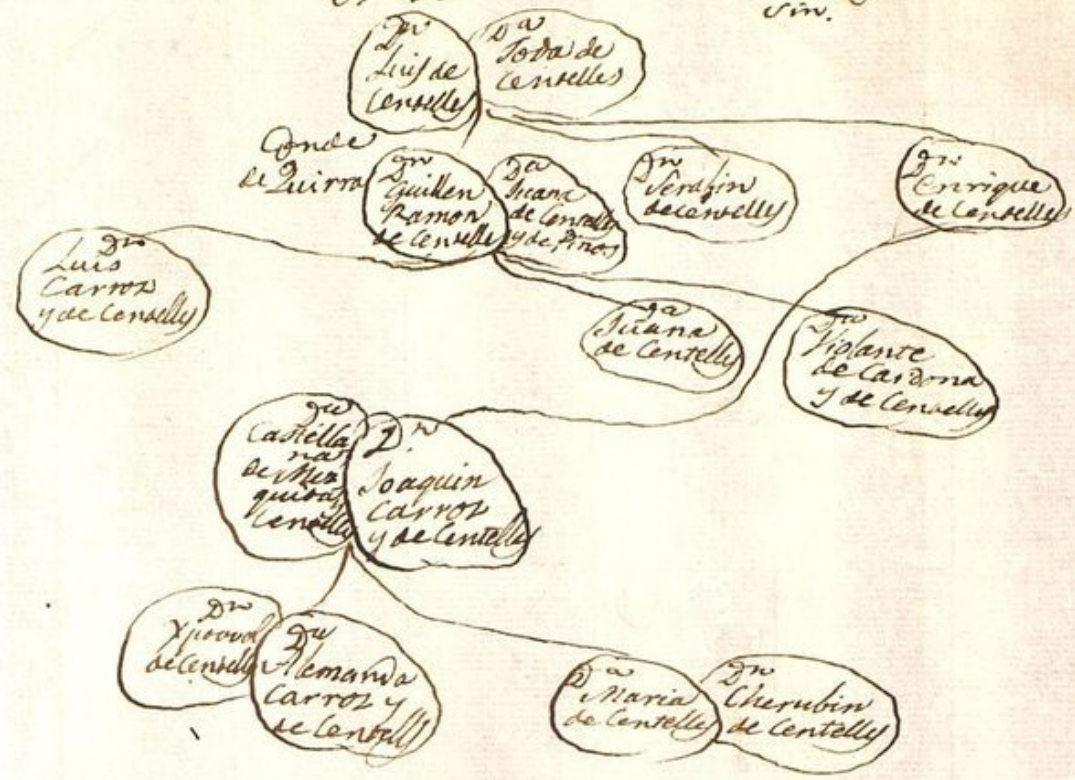 sin.
Dn
Luis de
Centelles
Da
Toda de
Centelles
Conde
de Quirra
Dn
Guillen
Ramon
de Centelles
Da
Juana
de Centelles
y de Pinos
Dn
Serafin
de Centelles
Dn
Enrique
de Centelles
Dn
Luis
Carroz
y de Centelles
Da
Juana
de Centelles
Da
Violante
de Cardona
y de Centelles
Da
Castella
na
de Mez
quitas
Centelles
Dn
Joaquin
Carroz
y de Centelles
Dn
Xpoval
de Centelles
Da
Alemanda
Carroz y
de Centelles
Da
Maria
de Centelles
Dn
Cherubin
de Centelles